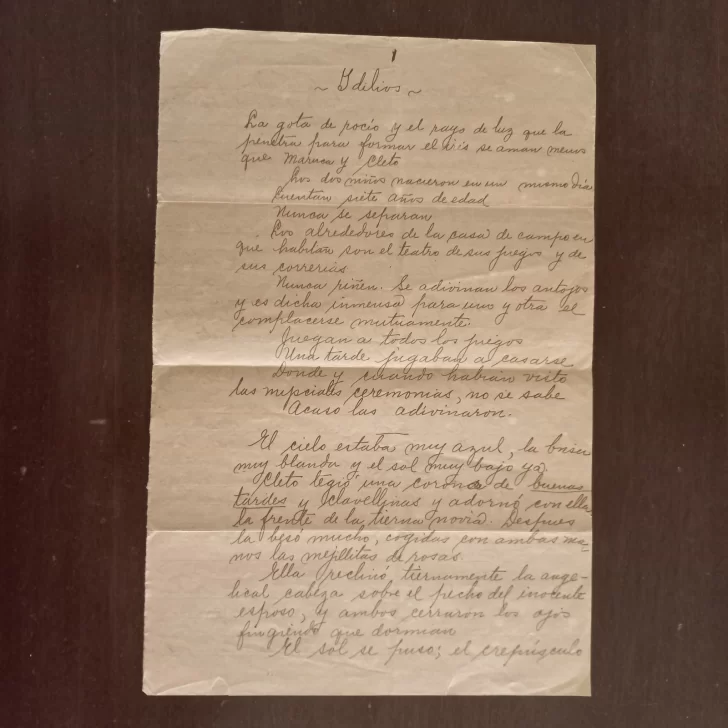 1
~ Idelios ~
La gota de rocío y el rayo de luz que la
penetra para formar el iris se aman menos
que Maruca y Cleto
Los dos niños nacieron en un mismo dia
Cuentan siete años de edad
Nunca se separan
Los alrededores de la casa de campo en
que habitan son el teatro de sus juegos y de
sus correrias
Nunca riñen. Se adivinan los antojos
y es dicha inmensa para uno y otra el
complacerse mutuamente.
Juegan a todos los juegos
Una tarde jugaban a casarse
Donde y cuando habian visto
las nupciales ceremonias, no se sabe
Acaso las adivinaron.
El cielo estaba muy azul, la brisa
muy blanda y el sol muy bajo ya.
Cleto tegió una corona de buenas
tardes y clavellinas y adornó con ella
la frente de la tierna novia. Despues
la besó mucho, cogidas con ambas ma-
nos las mejillitas de rosas.
Ella reclinó, tiernamente la ange-
lical cabeza sobre el pecho del inocente
esposo, y ambos cerraron los ojos
fingiendo que dormian
El sol se puso; el crepúsculo